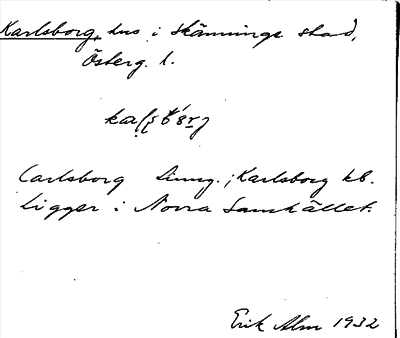 Karlsborg, hus i Skänninge stad,
Österg. l.
Carlsborg Ljung.; Karlsborg kb.
Ligger i Norra Samhället.
Erik Alm 1932